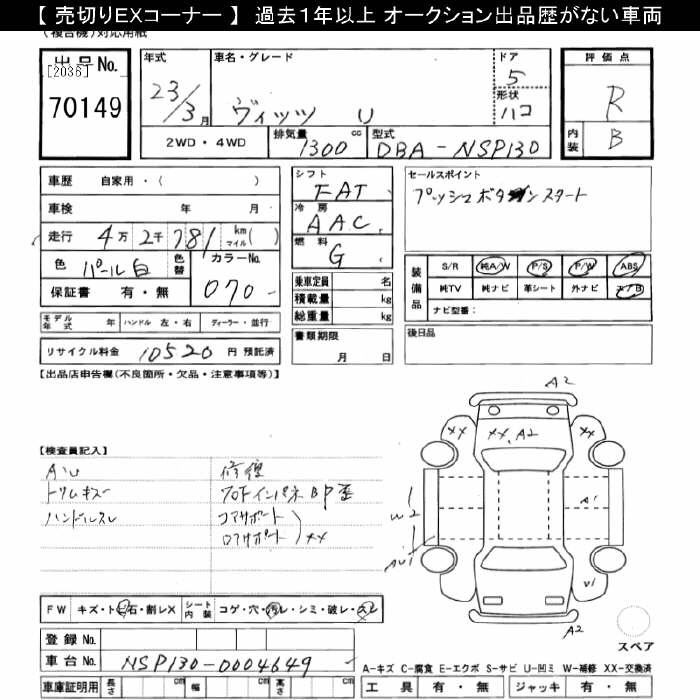 【 売切りEXコーナー 】 過去1年以上 オークション出品歴がない車両
(複合機)対応用紙
出品No.
[2036]
70149
年式
23/3月
車名・グレード
ヴィッツ U
ドア
5
形状
ハコ
評価点
R
内装
B
2WD・4WD
排気量
1300 cc
型式
DBA-NSP130
車歴 自家用・( )
車検 年 月
走行 4万2千781 km マイル( )
色 パール白 色替
カラーNo.
070
保証書 有・無
シフト
FAT
冷房
AAC
燃料
G
乗車定員 名
積載量 kg
総重量 kg
書類期限
月 日
セールスポイント
プッシュボタンスタート
装備品
S/R 純A/W P/S P/W ABS
純TV 純ナビ 革シート 外ナビ エアB
ナビ型番:
後日品
モデル年式 年 ハンドル 左・右 ディーラー・並行
リサイクル料金 10520 円 預託済
【出品店申告欄(不良箇所・欠品・注意事項等)】
【検査員記入】
AU
トリムキズ
ハンドルスレ
修復
フロアインパネBP歪
コアサポート
ロアサポート
XX
A2
XX
XX, A2
XX
A1
W2
AU1
U1
A2
スペア
FW キズ・トビ石・割レX
シート内装 コゲ・穴・汚レ・シミ・破レ・スレ
登録No.
車台No. NSP130-0004649
車庫証明用 長さ cm 幅 cm 高さ cm
A-キズ C-腐食 E-エクボ S-サビ U-凹ミ W-補修 XX-交換済
工具 有・無 ジャッキ 有・無